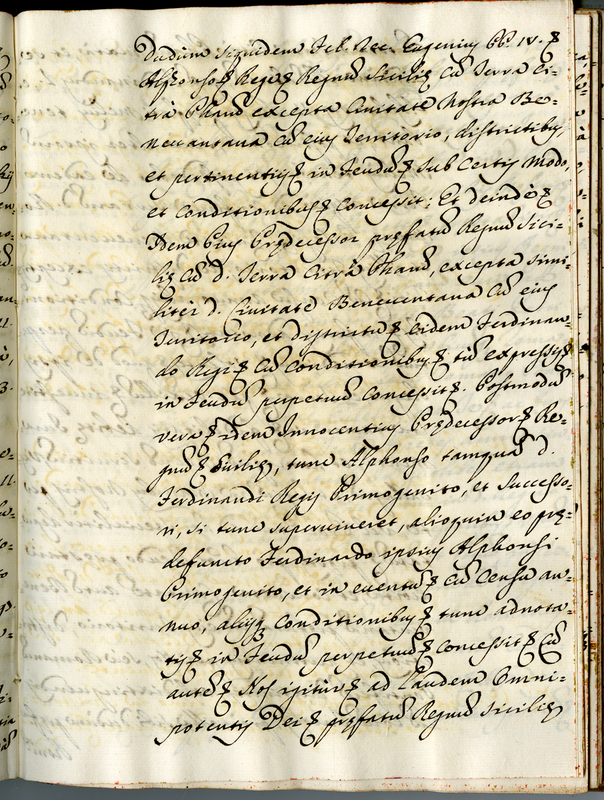 Dudum siquidem fel. rec. Eugenius PP. IV. &
Alfonso & Regi & Regnum Sicilię cũ Terra Ci-
trà Pharũ excepta Civitate nostra Be-
neventana cũ eius Territorio, districtibus,
et pertinentijs & in feudũ & sub certis modo,
et conditionibus & concessit; Et deindè &
Idem Pius Prędecessor pręfatũ Regnũ Sici-
lię cũ d. Terra Citrà Pharũ, excepta simi-
liter d. Civitate Beneventana cũ eius
Territorio, et districtu & eidem Ferdinan-
do Regi & cũ conditionibus & tũc expressis &
in feudũ perpetuũ concessit &. Postmodũ
verò & idem Innocentius Prędecessor & Re-
gnũ & Sicilię, tunc Alphonso tamquã d.
Ferdinandi Regis Primogenito, et successo-
ri, si tunc superviveret, alioquin eo prę-
defuncto Ferdinando ipsius Alphonsi
Primogenito, et in eventũ & cũ censu an-
nuo, alijsq conditionibus & tunc adnota-
tis & in feudũ perpetuũ & concessit & Cũ
autẽ & Nos igitur & ad laudem omni-
potentis Dei & pręfatũ Regnũ Sicilię